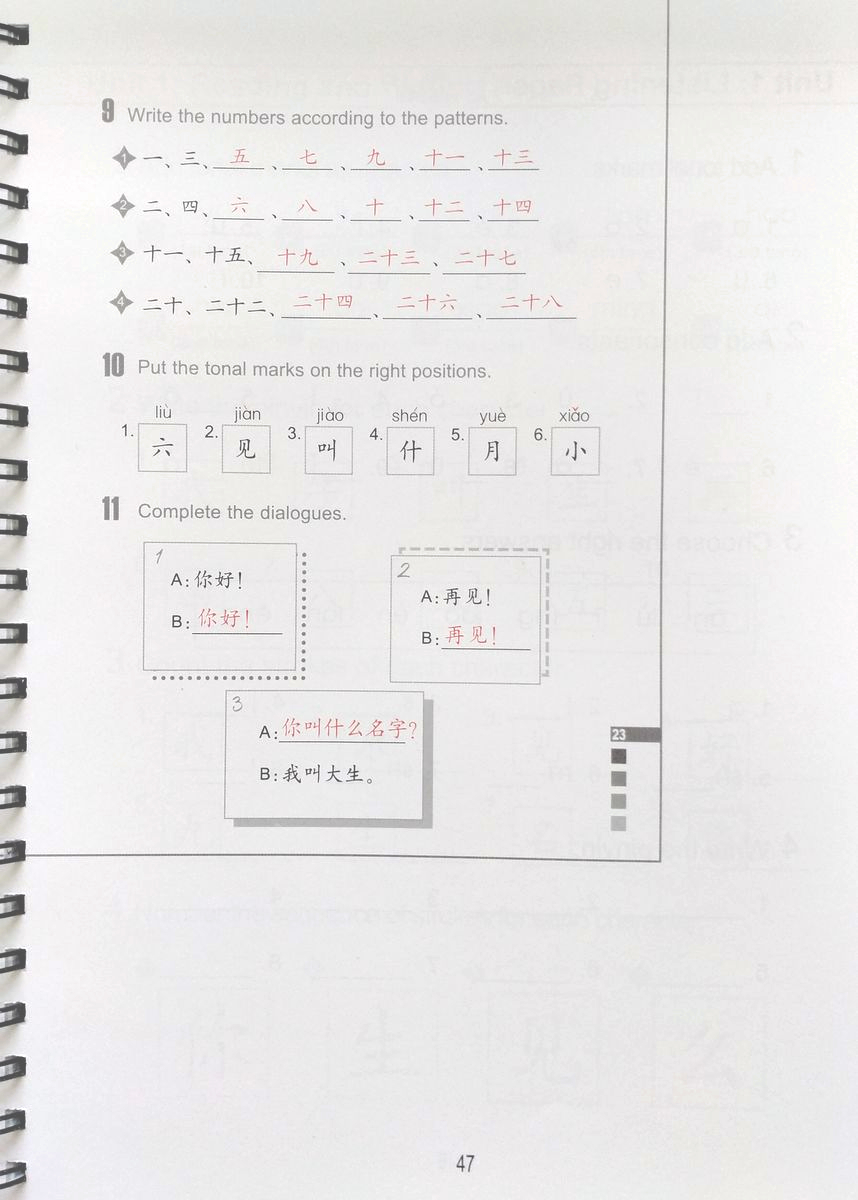 9 Write the numbers according to the patterns.
1 一、三、五、七、九、十一、十三
2 二、四、六、八、十、十二、十四
3 十一、十五、十九、二十三、二十七
4 二十、二十二、二十四、二十六、二十八
10 Put the tonal marks on the right positions.
liù jiàn jiào shén yuè xiǎo
1. 六 2. 见 3. 叫 4. 什 5. 月 6. 小
11 Complete the dialogues.
1
A: 你好!
B: 你好!
2
A: 再见!
B: 再见!
3
A: 你叫什么名字?
B: 我叫大生。
23
47